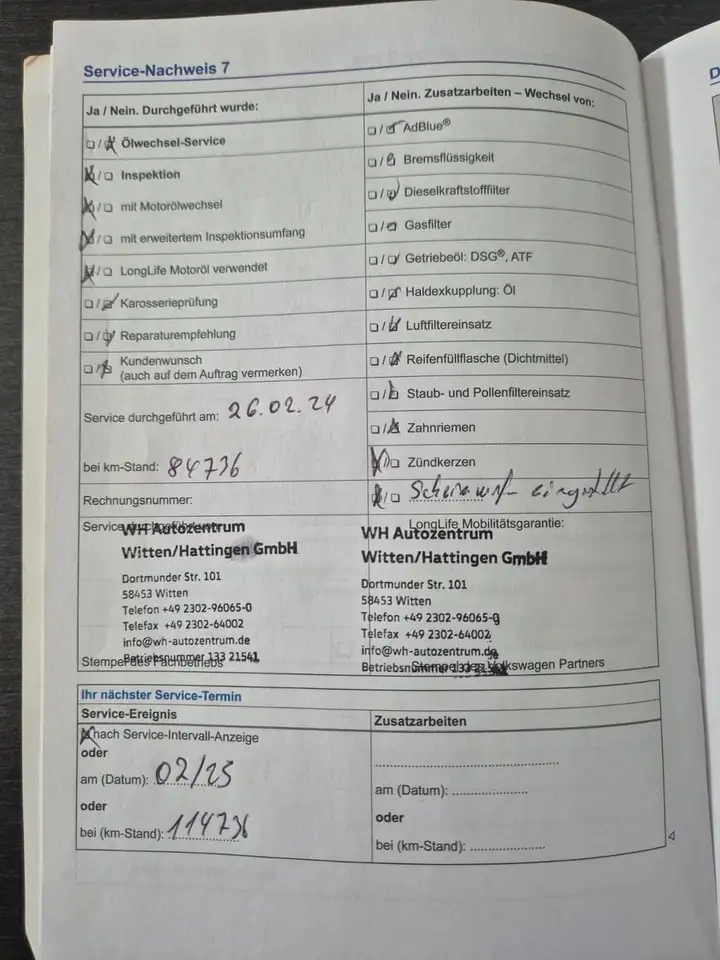 Service-Nachweis 7
Ja / Nein. Durchgeführt wurde:
Ölwechsel-Service
Inspektion
mit Motorölwechsel
mit erweitertem Inspektionsumfang
LongLife Motoröl verwendet
Karosserieprüfung
Reparaturempfehlung
Kundenwunsch
(auch auf dem Auftrag vermerken)
Service durchgeführt am: 26.02.24
bei km-Stand: 84736
Rechnungsnummer:
Ja / Nein. Zusatzarbeiten – Wechsel von:
AdBlue®
Bremsflüssigkeit
Dieselkraftstofffilter
Gasfilter
Getriebeöl: DSG®, ATF
Haldexkupplung: Öl
Luftfiltereinsatz
Reifenfüllflasche (Dichtmittel)
Staub- und Pollenfiltereinsatz
Zahnriemen
Zündkerzen
eingestellt
Service
WH Autozentrum
Witten/Hattingen GmbH
Dortmunder Str. 101
58453 Witten
Telefon +49 2302-96065-0
Telefax +49 2302-64002
info@wh-autozentrum.de
Betriebsnummer 133 21541
Stempel des Fachbetriebs
LongLife Mobilitätsgarantie:
WH Autozentrum
Witten/Hattingen GmbH
Dortmunder Str. 101
58453 Witten
Telefon +49 2302-96065-0
Telefax +49 2302-64002
info@wh-autozentrum.de
Betriebsnummer 133 21541
Stempel des Volkswagen Partners
Ihr nächster Service-Termin
Service-Ereignis
nach Service-Intervall-Anzeige
oder
am (Datum): 02/25
oder
bei (km-Stand): 114736
Zusatzarbeiten
am (Datum):
oder
bei (km-Stand):